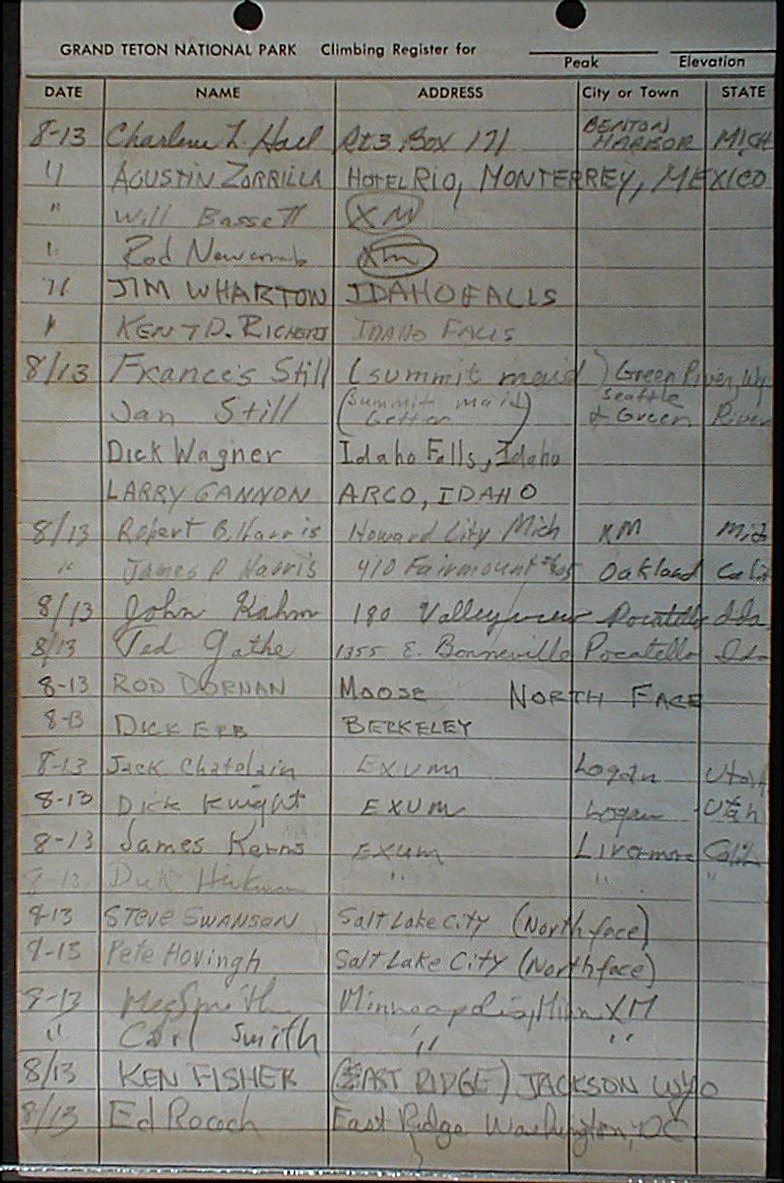 GRAND TETON NATIONAL PARK Climbing Register for
Peak Elevation
DATE NAME ADDRESS City or Town STATE
8-13 Charlene L. Hall Rt 3 Box 171 BENTON HARBOR MICH
" AGUSTIN ZORRILLA HOTEL RIO, MONTERREY, MEXICO
" Will Bassett XM
" Rod Newcomb XM
" JIM WHARTON IDAHO FALLS
" KENT D. RICHARDS IDAHO FALLS
8/13 Frances Still (summit maid) Green River, Wy
Jan Still (Summit maid) Seattle & Green River
Dick Wagner Idaho Falls, Idaho
LARRY GANNON ARCO, IDAHO
8/13 Robert B. Harris Howard City Mich XM Mich
" James P Harris 410 Fairmount Oakland Calif
8/13 John Kahm 180 Valleyview Pocatello Ida
8/13 Ted Gathe 1355 E. Bonneville Pocatello Ida
8-13 ROD DORNAN MOOSE NORTH FACE
8-13 DICK ERB BERKELEY
8-13 Jack Chatelain EXUM Logan Utah
8-13 Dick Knight EXUM Logan Utah
8-13 James Kerns EXUM Livermore Calif
8-13 Dick " " "
8-13 STEVE SWANSON Salt Lake City (North face)
8-13 Pete Hovingh Salt Lake City (North face)
8-13 Meg Smith Minneapolis, Minn XM
" Carl Smith " "
8/13 KEN FISHER (EAST RIDGE) JACKSON WYO
8/13 Ed Rococh East Ridge Washington, DC